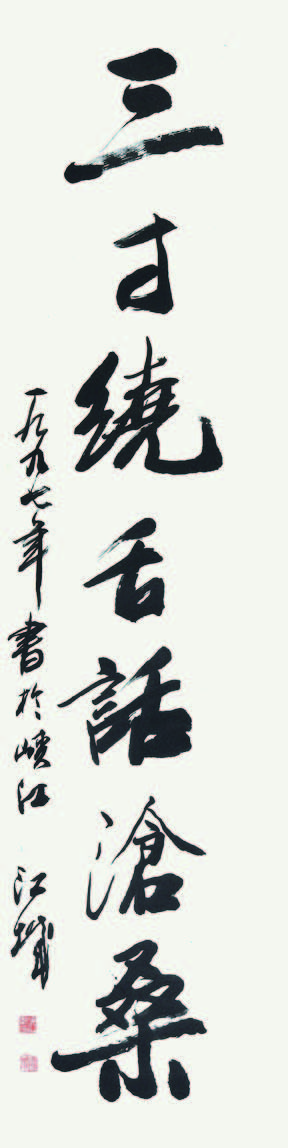 三寸繞舌話滄桑
一九九七年書於峽江 江城